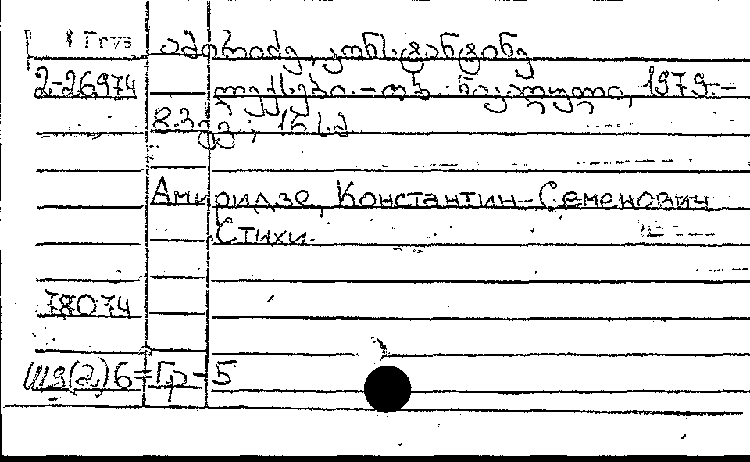 Груз ამირიძე, კონსტანტინე
2-26974 ლექსები. - თბ. ნაკადული, 1979. -
83 გვ; 15 სმ
Амиридзе, Константин Семенович
Стихи.
78074
Ш3(2)6=Гр-5